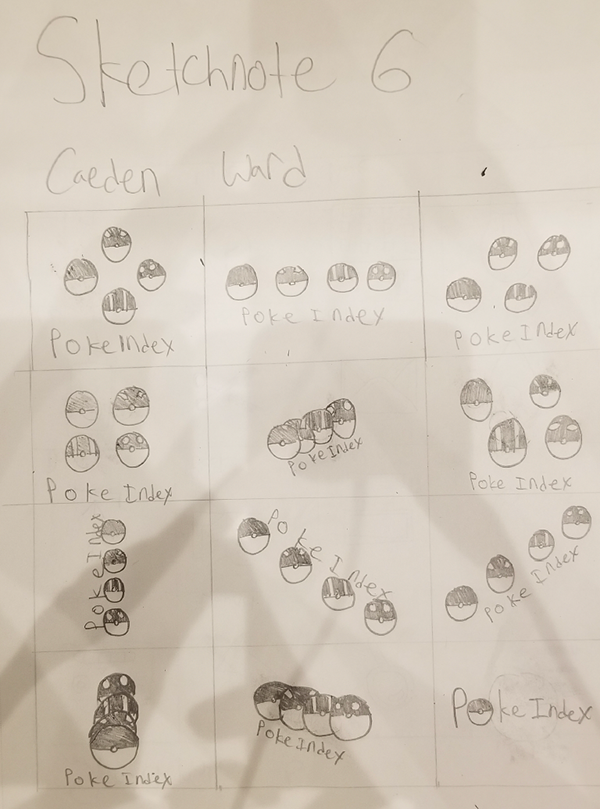 Sketchnote 6
Caeden Ward
Poke Index
Poke Index
Poke Index
Poke Index
Poke Index
Poke Index
Poke Index
Poke Index
Poke Index
Poke Index
Poke Index
Poke Index